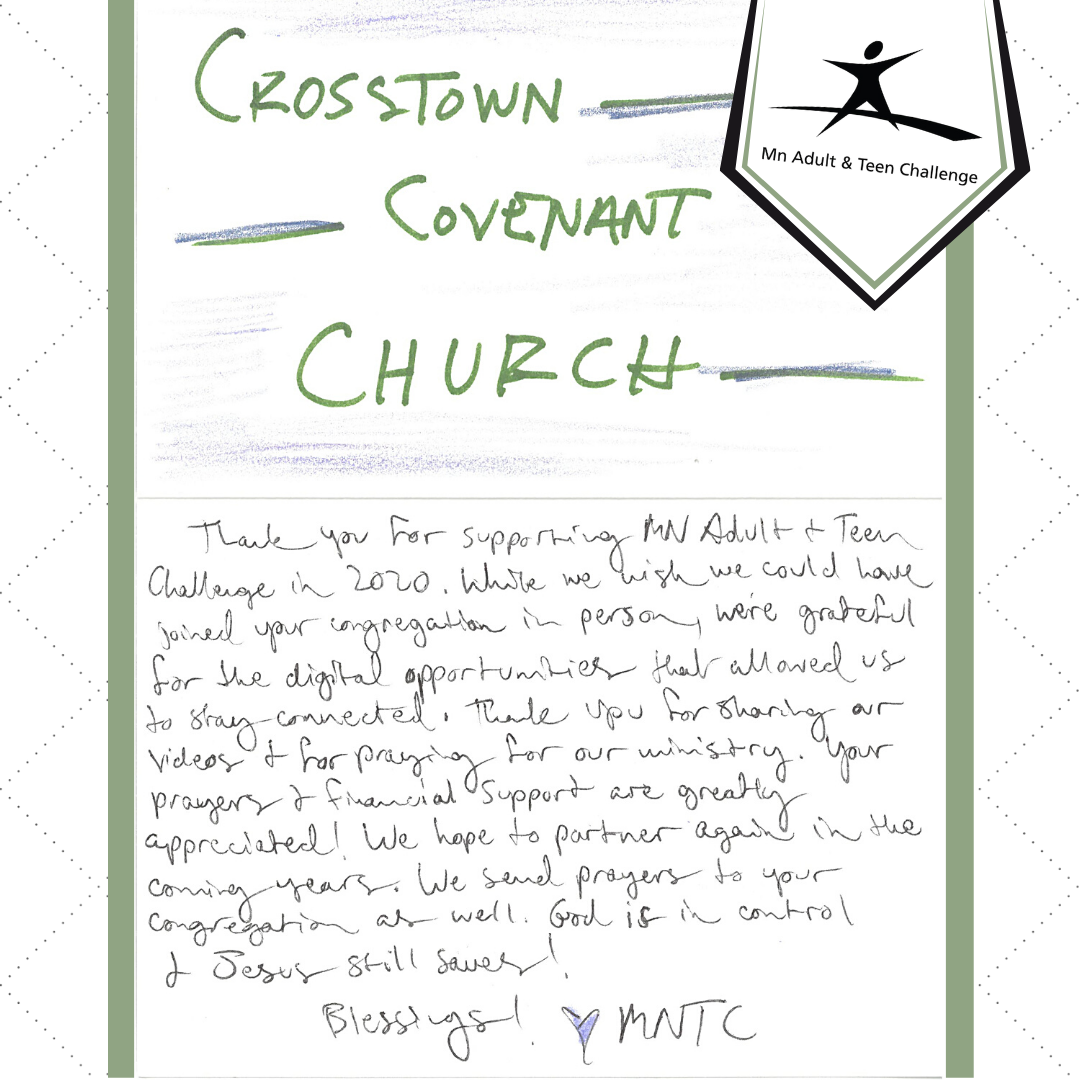 CROSSTOWN
COVENANT
CHURCH
Mn Adult & Teen Challenge
Thank you for supporting MN Adult & Teen
Challenge in 2020. While we wish we could have
joined your congregation in person, we're grateful
for the digital opportunities that allowed us
to stay connected. Thank you for sharing our
videos & for praying for our ministry. Your
prayers & financial support are greatly
appreciated! We hope to partner again in the
coming years. We send prayers to your
congregation as well. God is in control
& Jesus still saves!
Blessings! MNTC